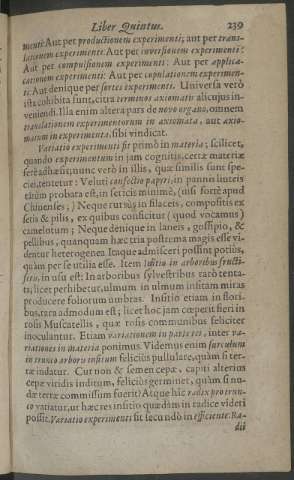 Liber Quintus. 239
menti: Aut per productionem experimenti; aut per trans-
lationem experimenti: Aut per inversionem experimenti:
Aut per compulsionem experimenti: Aut per applica-
tionem experimenti: Aut per copulationem experimen-
ti: Aut denique per sortes experimenti. Universa verò
ista cohibita sunt, citra terminos axiomatis alicujus in-
veniendi. Illa enim altera pars de novo organo, omnem
translationem experimentorum in axiomata, aut axio-
matum in experimenta, sibi vindicat.
Variatio experimenti fit primò in materia; scilicet,
quando experimentum in jam cognitis, certæ materiæ
ferè adhæsit; nunc verò in illis, quæ similis sunt spe-
ciei, tentetur: Veluti confectio papyri, in pannis linteis
tantùm probata est, in sericis minimè, (nisi fortè apud
Chinenses;) Neque rursùs in filaceis, compositis ex
setis & pilis, ex quibus conficitur (quod vocamus)
camelotum; Neque denique in laneis, gossipio, &
pellibus, quanquam hæc tria postrema magis esse vi-
dentur heterogenea. Itaque admisceri possint potiùs,
quàm per se utilia esse. Item insitio in arboribus fructi-
feris, in usu est: In arboribus sylvestribus rarò tenta-
ta; licet perhibetur, ulmum in ulmum insitam miras
producere foliorum umbras. Insitio etiam in flori-
bus, rara admodum est; licet hoc jam cœperit fieri in
rosis Muscatellis, quæ rosis communibus feliciter
inoculantur. Etiam variationem in parte rei, inter va-
riationes in materia ponimus. Videmus enim surculum
in trunco arboris insitum feliciùs pullulare, quàm si ter-
ræ indatur. Cur non & semen cepæ, capiti alterius
cepæ viridis inditum, feliciùs germinet, quàm si nu-
dæ terræ commissum fuerit? Atque hîc radix pro trun-
co variatur, ut hæc res insitio quædam in radice videri
possit. Variatio experimenti fit secundò in efficiente: Ra-
dii